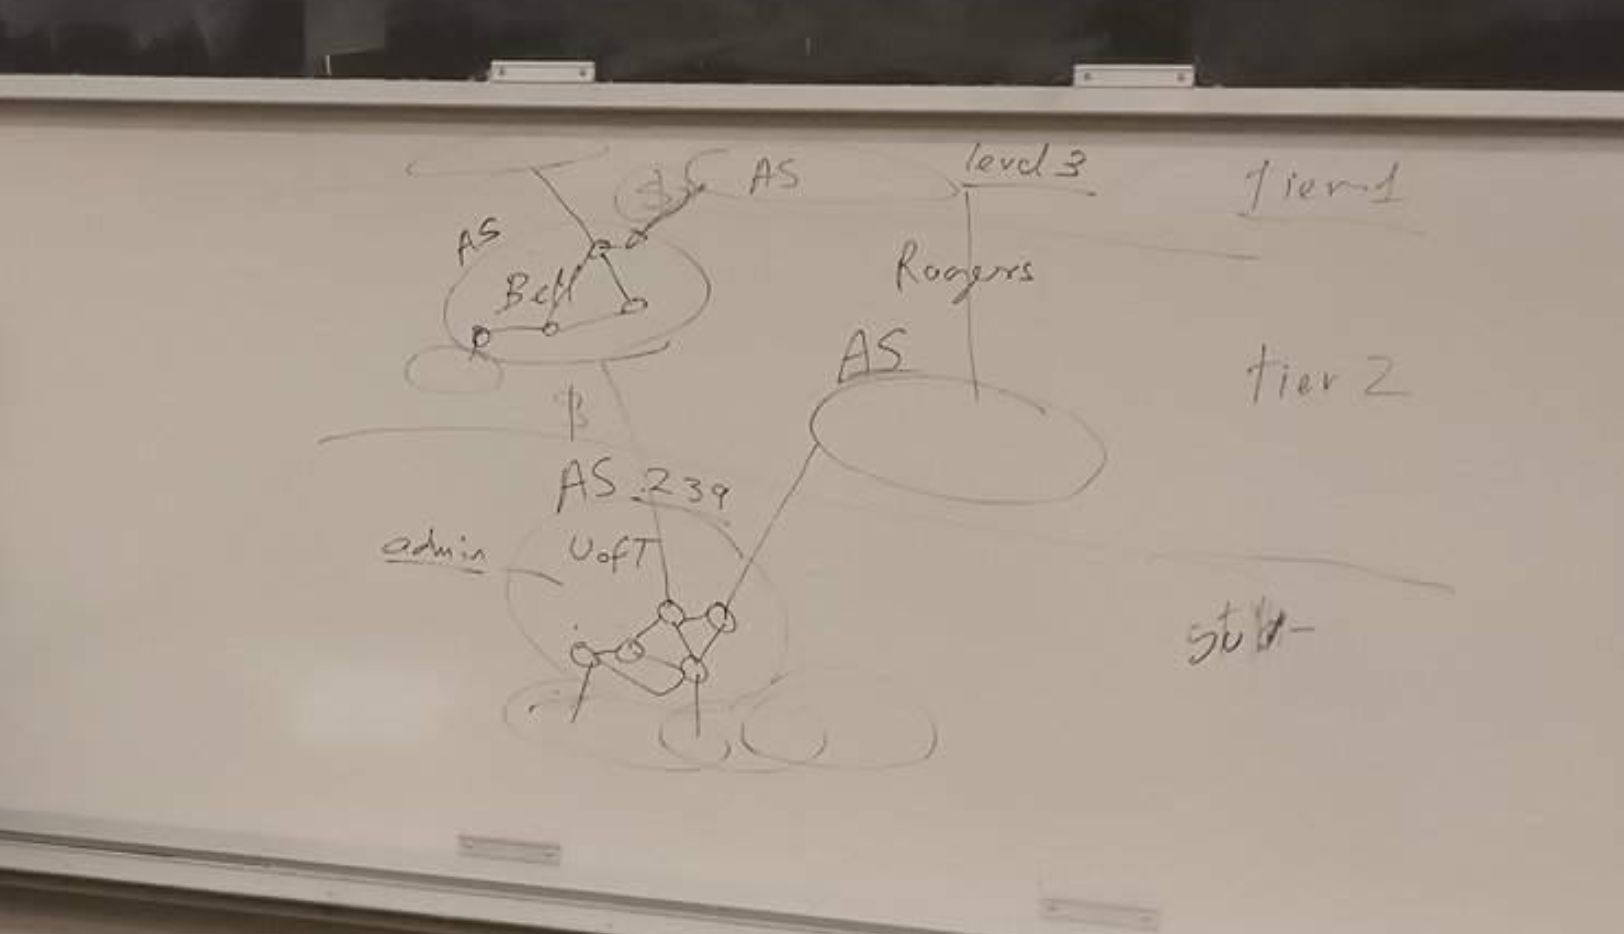 level 3
AS
tier 1
$
AS
Bell
Rogers
AS
tier 2
$
AS 239
admin
UofT